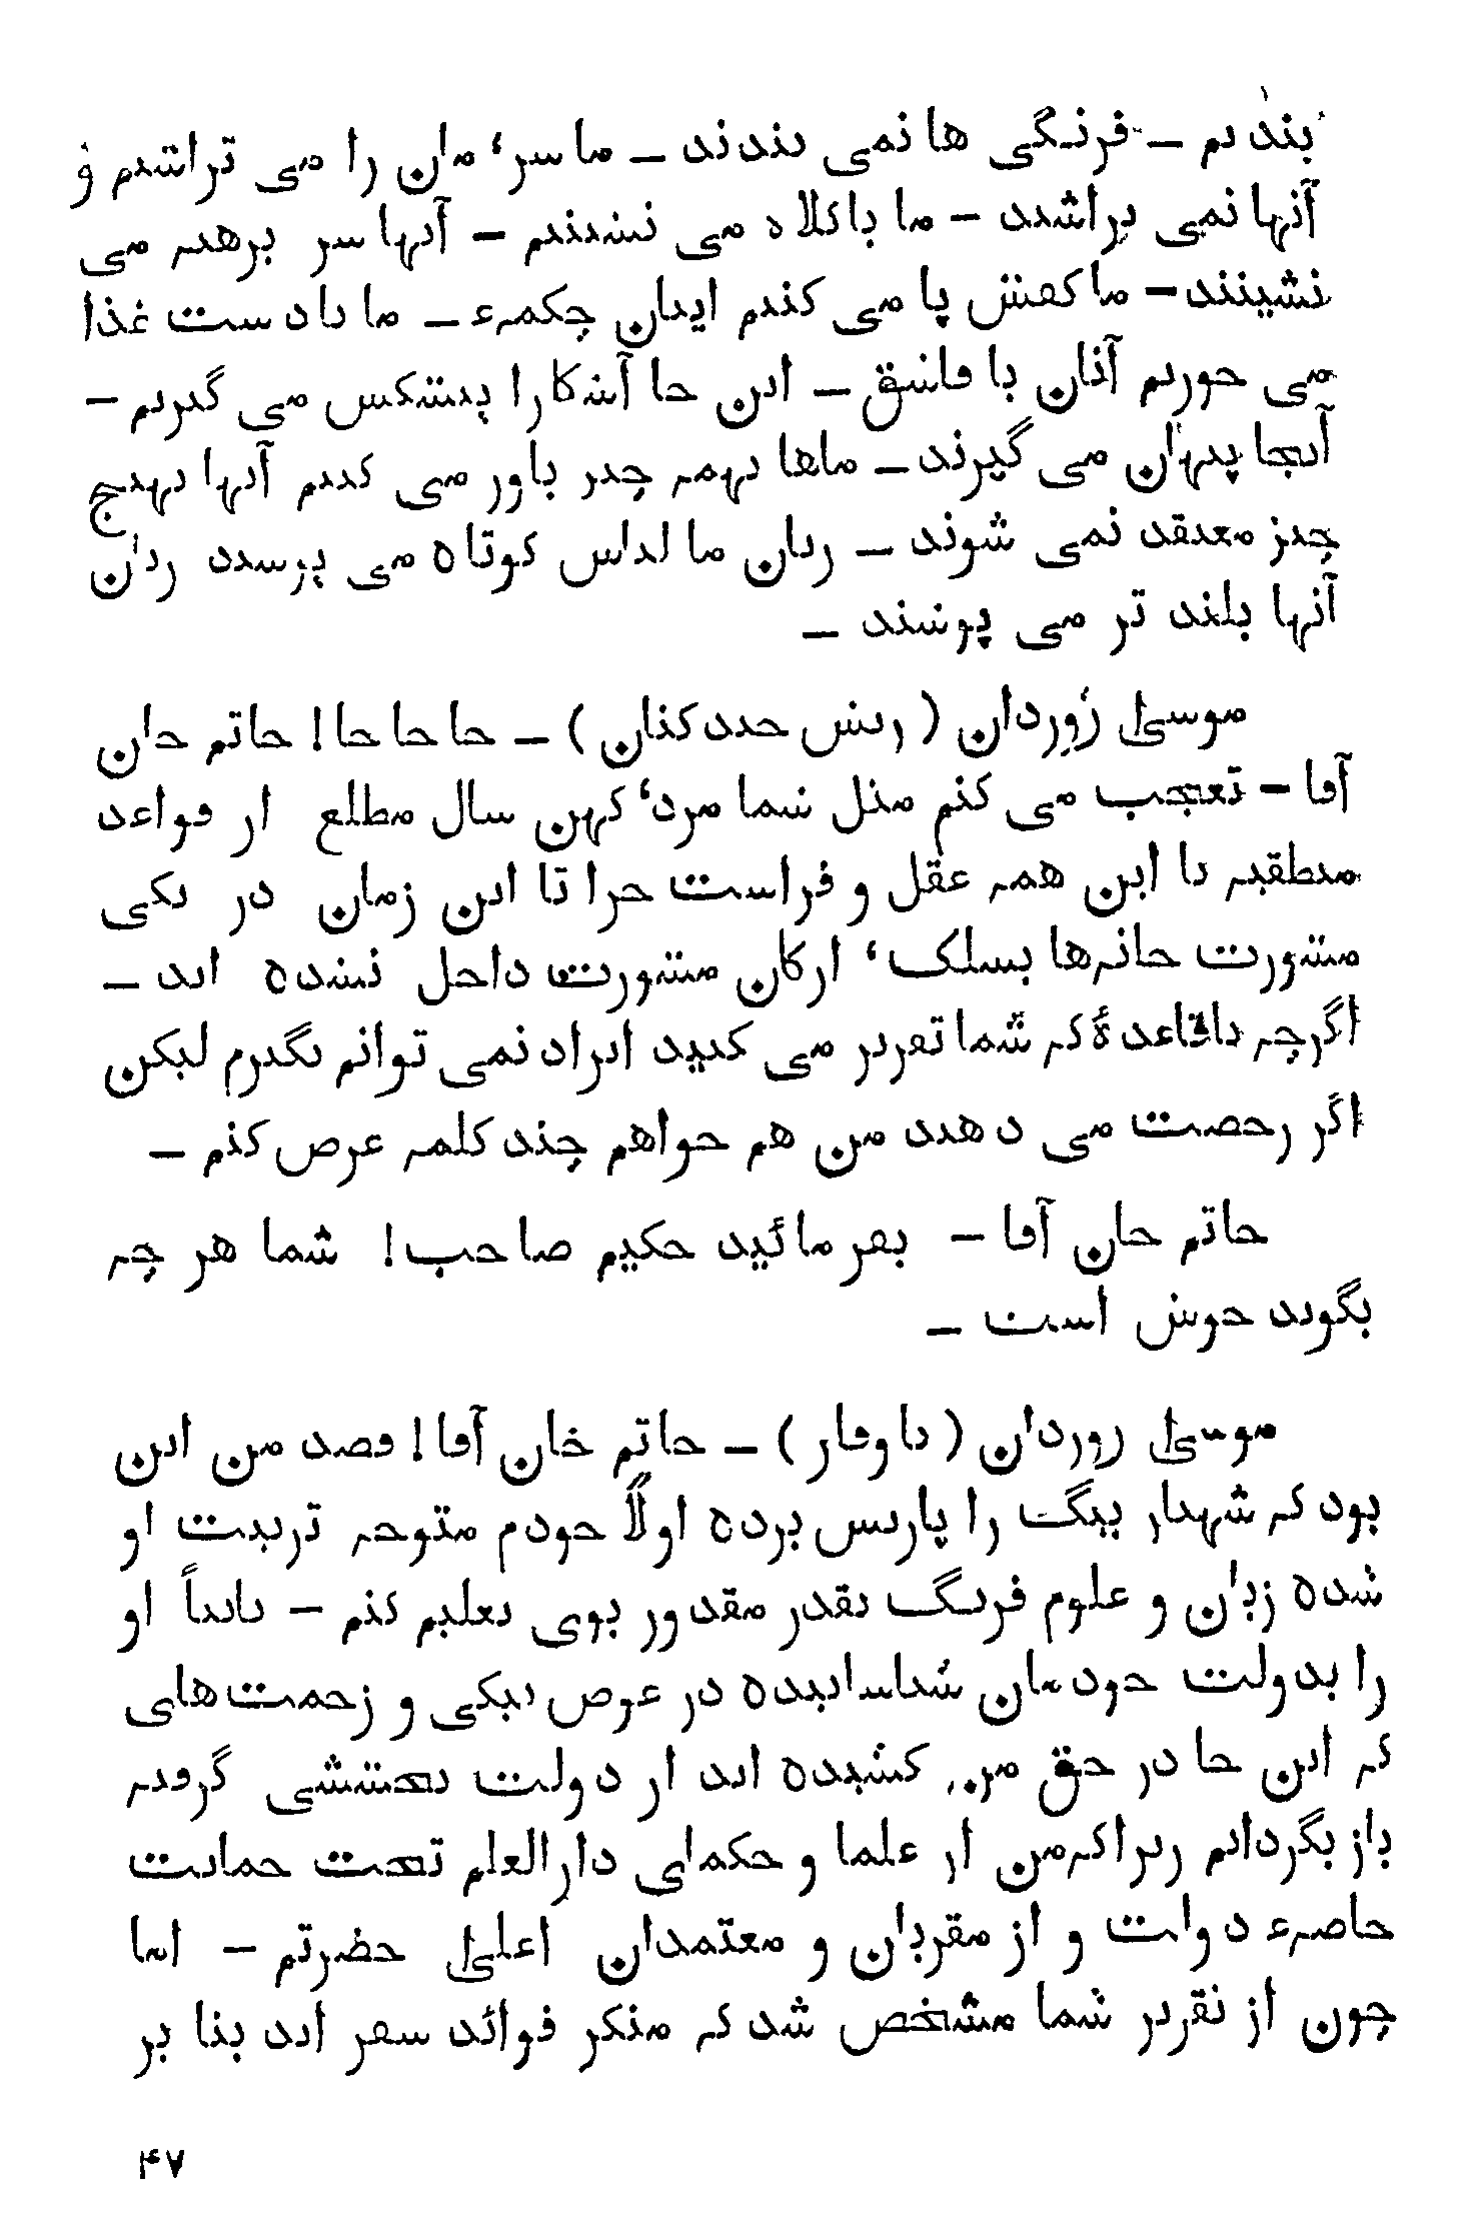 بندیم — فرنگی ها نمی بندند — ما سر، مان را می تراشیم و
آنها نمی تراشند — ما با کلاه می نشینیم — آنها سر برهنه می
نشینند — ما کفش پا می کنیم ایشان چکمهء — ما با دست غذا
می خوریم آنان با قاشق — این جا آشکارا پیشکش می گیریم —
آنجا پنهان می گیرند — ماها بهمه چیز باور می کنیم آنها بهیچ
چیز معتقد نمی شوند — زنان ما لباس کوتاه می پوشند زنان
آنها بلند تر می پوشند —
موسیٰ ژوردان (ریش خند کنان) — ها ها ها! حاتم خان
آقا — تعجب می کنم مثل شما مرد، کهن سال مطلع از قواعد
منطقیه با این همه عقل و فراست چرا تا این زمان در یکی
مشورت خانهها بسلک، ارکان مشورت داخل نشده اند —
اگرچه باقاعدۀ که شما تقریر می کنید ایراد نمی توانم بگیرم لیکن
اگر رخصت می دهید من هم خواهم چند کلمه عرض کنم —
حاتم خان آقا — بفرمائید حکیم صاحب! شما هر چه
بگوید خوش است —
موسیٰ ژوردان (باوقار) — حاتم خان آقا! قصد من این
بود که شهباز بیگ را پاریس برده اولاً خودم متوجه تربیت او
شده زبان و علوم فرنگ بقدر مقدور بوی تعلیم کنم — ثانیاً او
را بدولت خودمان شناسانیده در عوض نیکی و زحمت های
که این جا در حق من کشیده اند از دولت بخششی گرفته
باز بگردانم زیراکه من از علما و حکمای دارالعلم تحت حمایت
خاصهء دولت و از مقربان و معتمدان اعلیٰ حضرتم — اما
چون از تقریر شما مشخص شد که منکر فوائد سفر اید بنا بر
۴۷